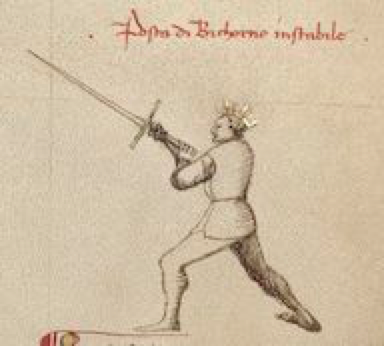 Posta di Bicorno instabile